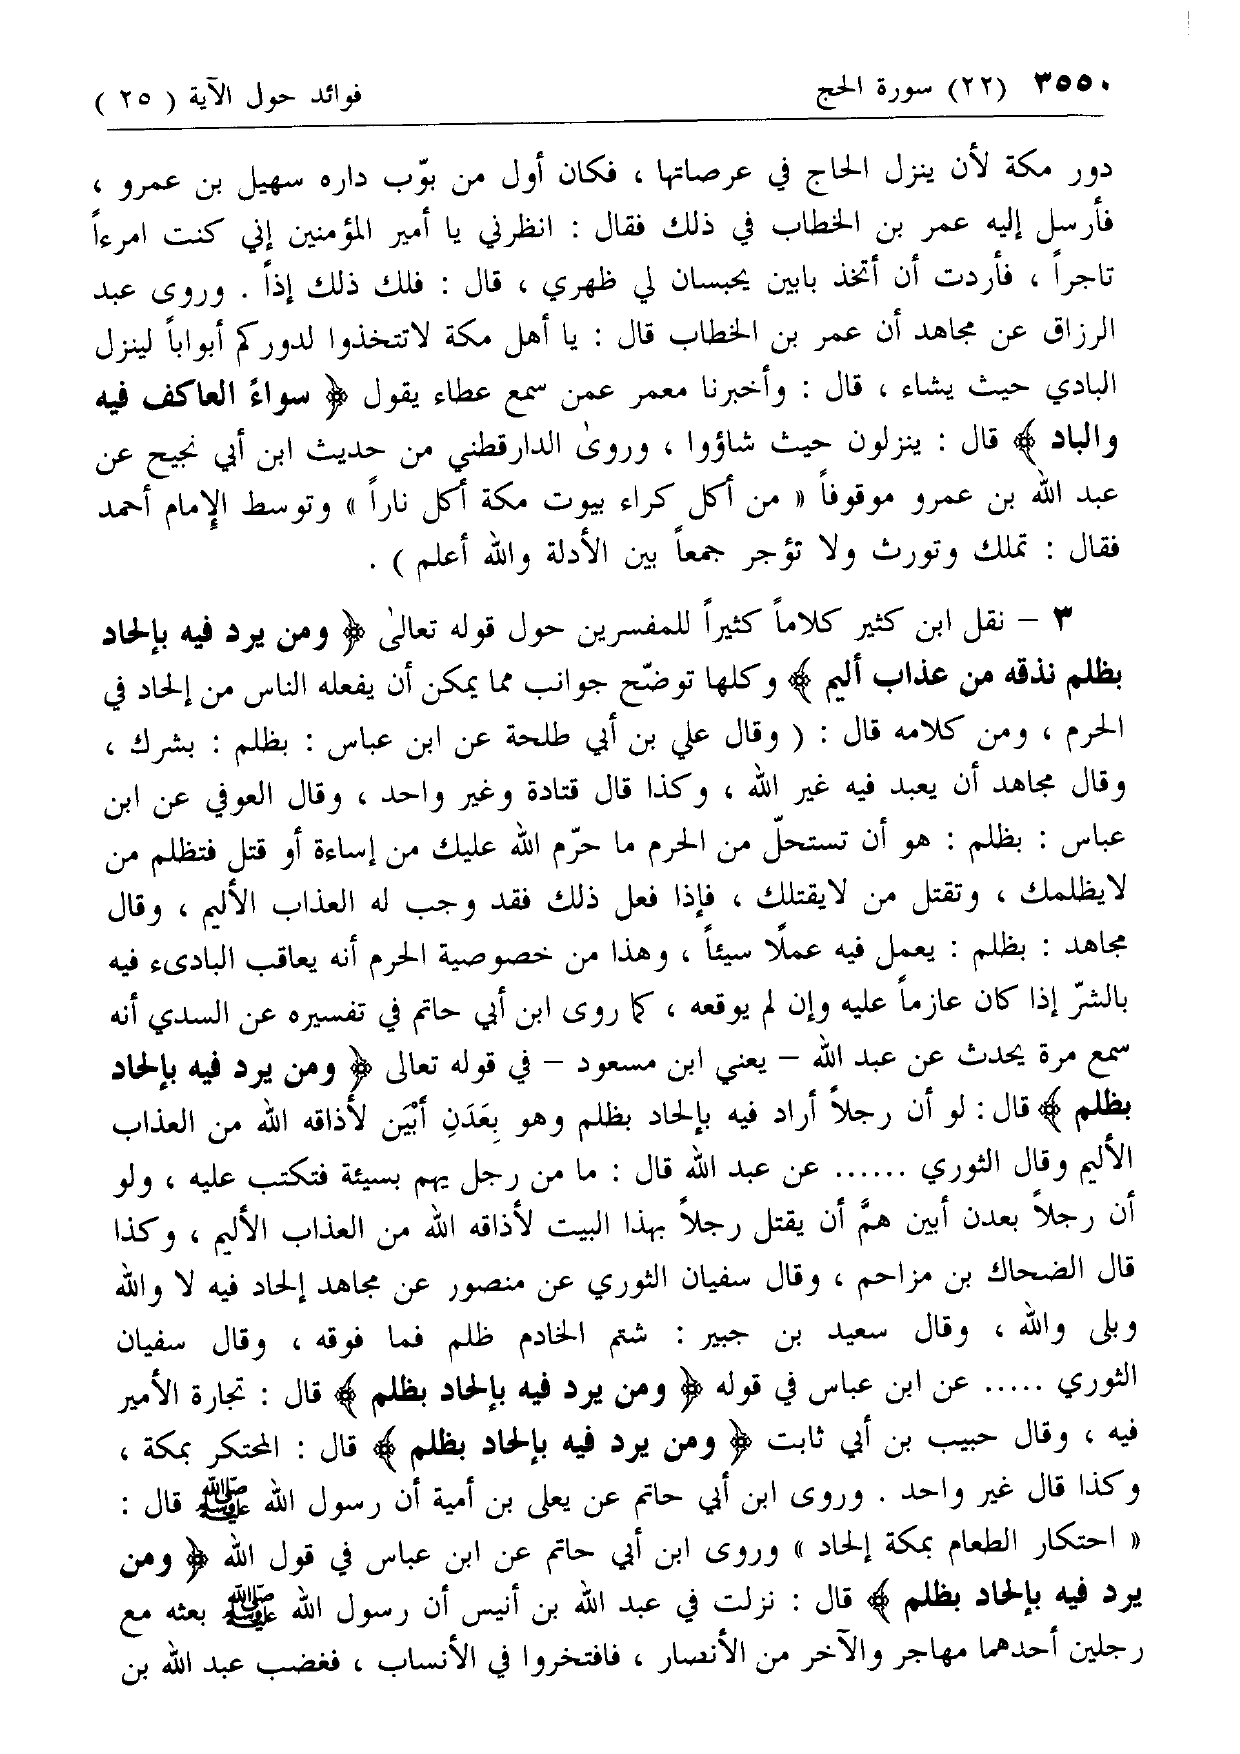 ٣٥٥٠ (٢٢) سورة الحج فوائد حول الآية ( ٢٥ )
دور مكة لأن ينزل الحاج في عرصاتها ، فكان أول من بوّب داره سهيل بن عمرو ،
فأرسل إليه عمر بن الخطاب في ذلك فقال : انظرني يا أمير المؤمنين إني كنت امرءاً
تاجراً ، فأردت أن أتخذ بابين يحبسان لي ظهري ، قال : فلك ذلك إذاً . وروى عبد
الرزاق عن مجاهد أن عمر بن الخطاب قال : يا أهل مكة لاتتخذوا لدوركم أبواباً لينزل
البادي حيث يشاء ، قال : وأخبرنا معمر عمن سمع عطاء يقول ﴿ سواءً العاكف فيه
والباد ﴾ قال : ينزلون حيث شاؤوا ، وروىٰ الدارقطني من حديث ابن أبي نجيح عن
عبد الله بن عمرو موقوفاً « من أكل كراء بيوت مكة أكل ناراً » وتوسط الإمام أحمد
فقال : تملك وتورث ولا تؤجر جمعاً بين الأدلة والله أعلم ) .
٣ – نقل ابن كثير كلاماً كثيراً للمفسرين حول قوله تعالىٰ ﴿ ومن يرد فيه بإلحاد
بظلم نذقه من عذاب أليم ﴾ وكلها توضّح جوانب مما يمكن أن يفعله الناس من إلحاد في
الحرم ، ومن كلامه قال : ( وقال علي بن أبي طلحة عن ابن عباس : بظلم : بشرك ،
وقال مجاهد أن يعبد فيه غير الله ، وكذا قال قتادة وغير واحد ، وقال العوفي عن ابن
عباس : بظلم : هو أن تستحلّ من الحرم ما حرّم الله عليك من إساءة أو قتل فتظلم من
لايظلمك ، وتقتل من لايقتلك ، فإذا فعل ذلك فقد وجب له العذاب الأليم ، وقال
مجاهد : بظلم : يعمل فيه عملًا سيئاً ، وهذا من خصوصية الحرم أنه يعاقب البادىء فيه
بالشرّ إذا كان عازماً عليه وإن لم يوقعه ، كما روى ابن أبي حاتم في تفسيره عن السدي أنه
سمع مرة يحدث عن عبد الله – يعني ابن مسعود – في قوله تعالى ﴿ ومن يرد فيه بإلحاد
بظلم ﴾ قال : لو أن رجلاً أراد فيه بإلحاد بظلم وهو بِعَدَنِ أبْيَن لأذاقه الله من العذاب
الأليم وقال الثوري ...... عن عبد الله قال : ما من رجل يهم بسيئة فتكتب عليه ، ولو
أن رجلاً بعدن أبين همَّ أن يقتل رجلاً بهذا البيت لأذاقه الله من العذاب الأليم ، وكذا
قال الضحاك بن مزاحم ، وقال سفيان الثوري عن منصور عن مجاهد إلحاد فيه لا والله
وبلى والله ، وقال سعيد بن جبير : شتم الخادم ظلم فما فوقه ، وقال سفيان
الثوري ..... عن ابن عباس في قوله ﴿ ومن يرد فيه بإلحاد بظلم ﴾ قال : تجارة الأمير
فيه ، وقال حبيب بن أبي ثابت ﴿ ومن يرد فيه بإلحاد بظلم ﴾ قال : المحتكر بمكة ،
وكذا قال غير واحد . وروى ابن أبي حاتم عن يعلى بن أمية أن رسول الله ﷺ قال :
« احتكار الطعام بمكة إلحاد » وروى ابن أبي حاتم عن ابن عباس في قول الله ﴿ ومن
يرد فيه بإلحاد بظلم ﴾ قال : نزلت في عبد الله بن أنيس أن رسول الله ﷺ بعثه مع
رجلين أحدهما مهاجر والآخر من الأنصار ، فافتخروا في الأنساب ، فغضب عبد الله بن